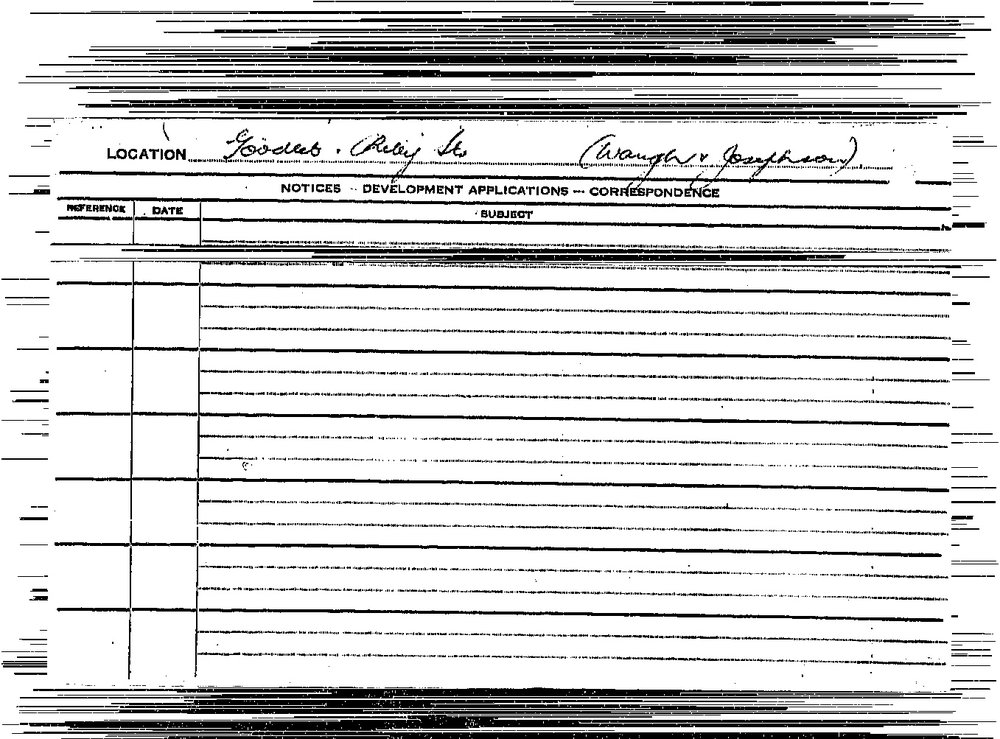 LOCATION Goodlet & Riley Sts (Waugh & Josephson).
NOTICES -- DEVELOPMENT APPLICATIONS -- CORRESPONDENCE
REFERENCE DATE SUBJECT